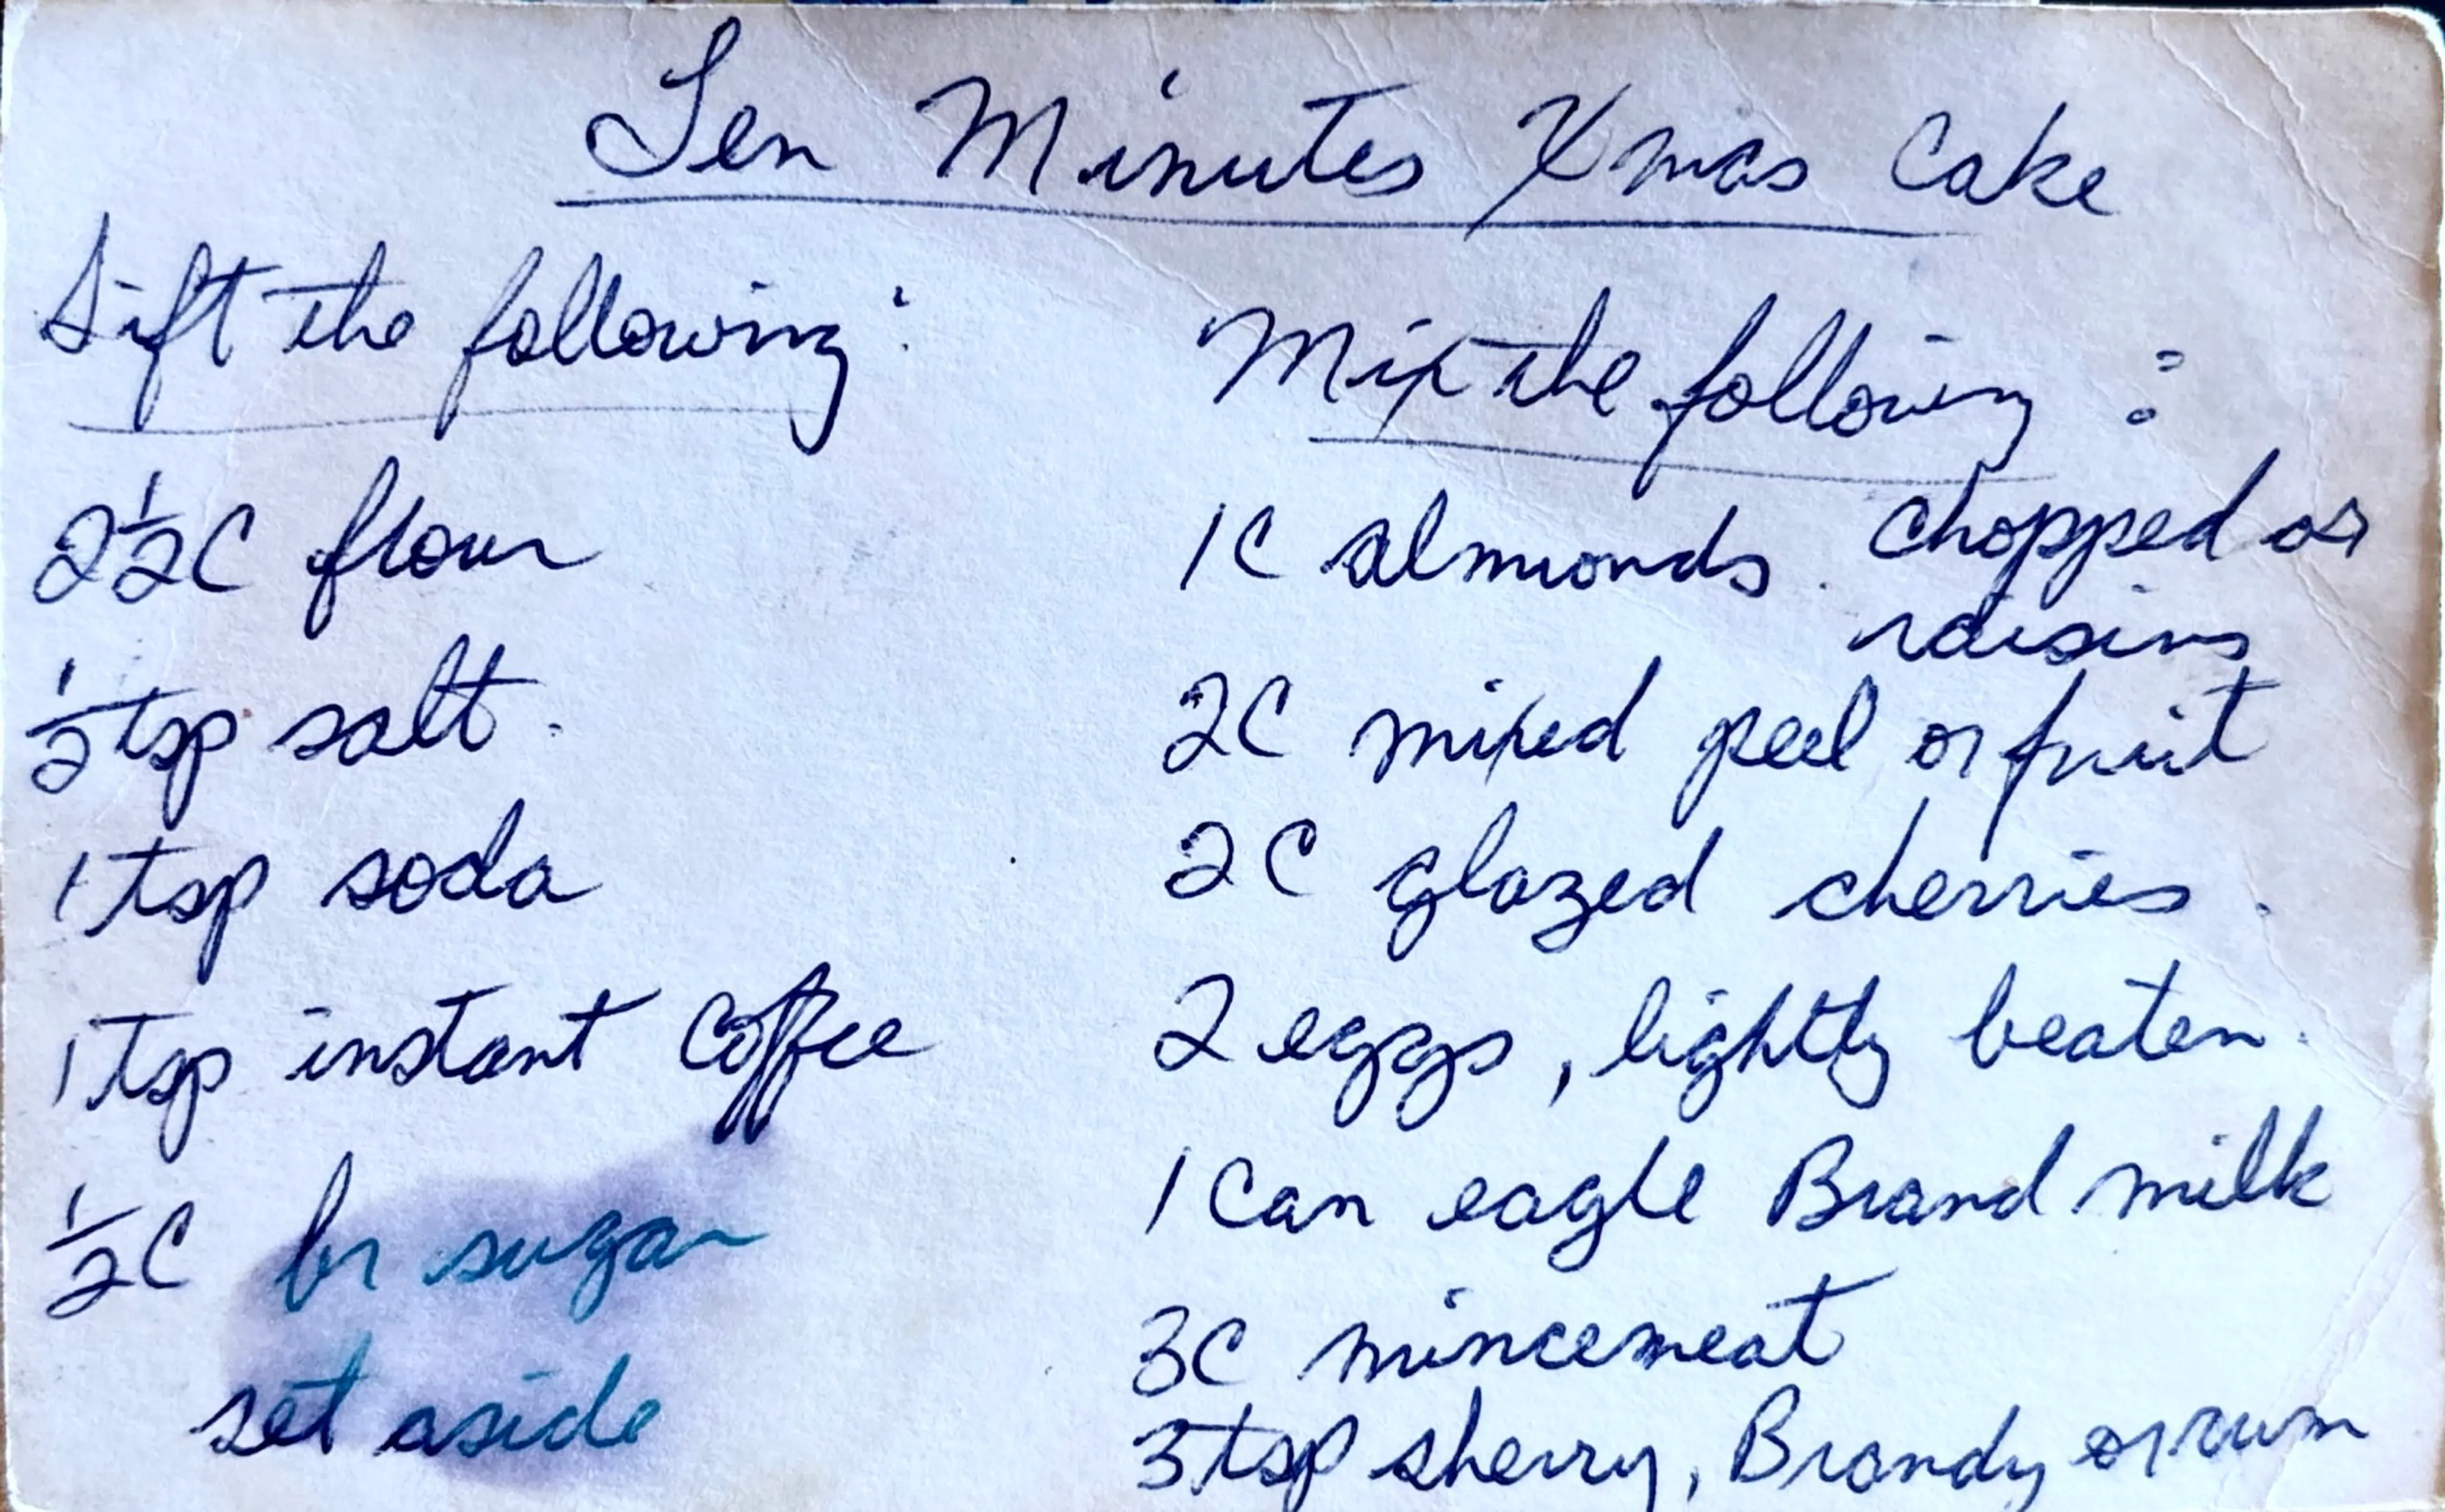 Ten Minutes Xmas Cake
Sift the following:
2½C flour
½ tsp salt.
1 tsp soda
1 tsp instant Coffee
½C br sugar
set aside
Mix the following:
1C almonds. chopped or
raisins
2C mixed peel or fruit
2C glazed cherries.
2 eggs, lightly beaten.
1 Can eagle Brand milk
3C mincemeat
3 tsp sherry, Brandy or rum